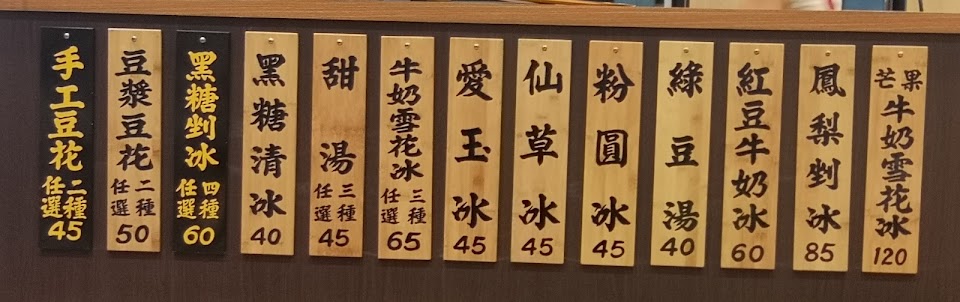 手工豆花
二種
任選
45
豆漿豆花
二種
任選
50
黑糖剉冰
四種
任選
60
黑糖清冰
40
甜湯
三種
任選
45
牛奶雪花冰
三種
任選
65
愛玉冰
45
仙草冰
45
粉圓冰
45
綠豆湯
40
紅豆牛奶冰
60
鳳梨剉冰
85
芒果
牛奶雪花冰
120